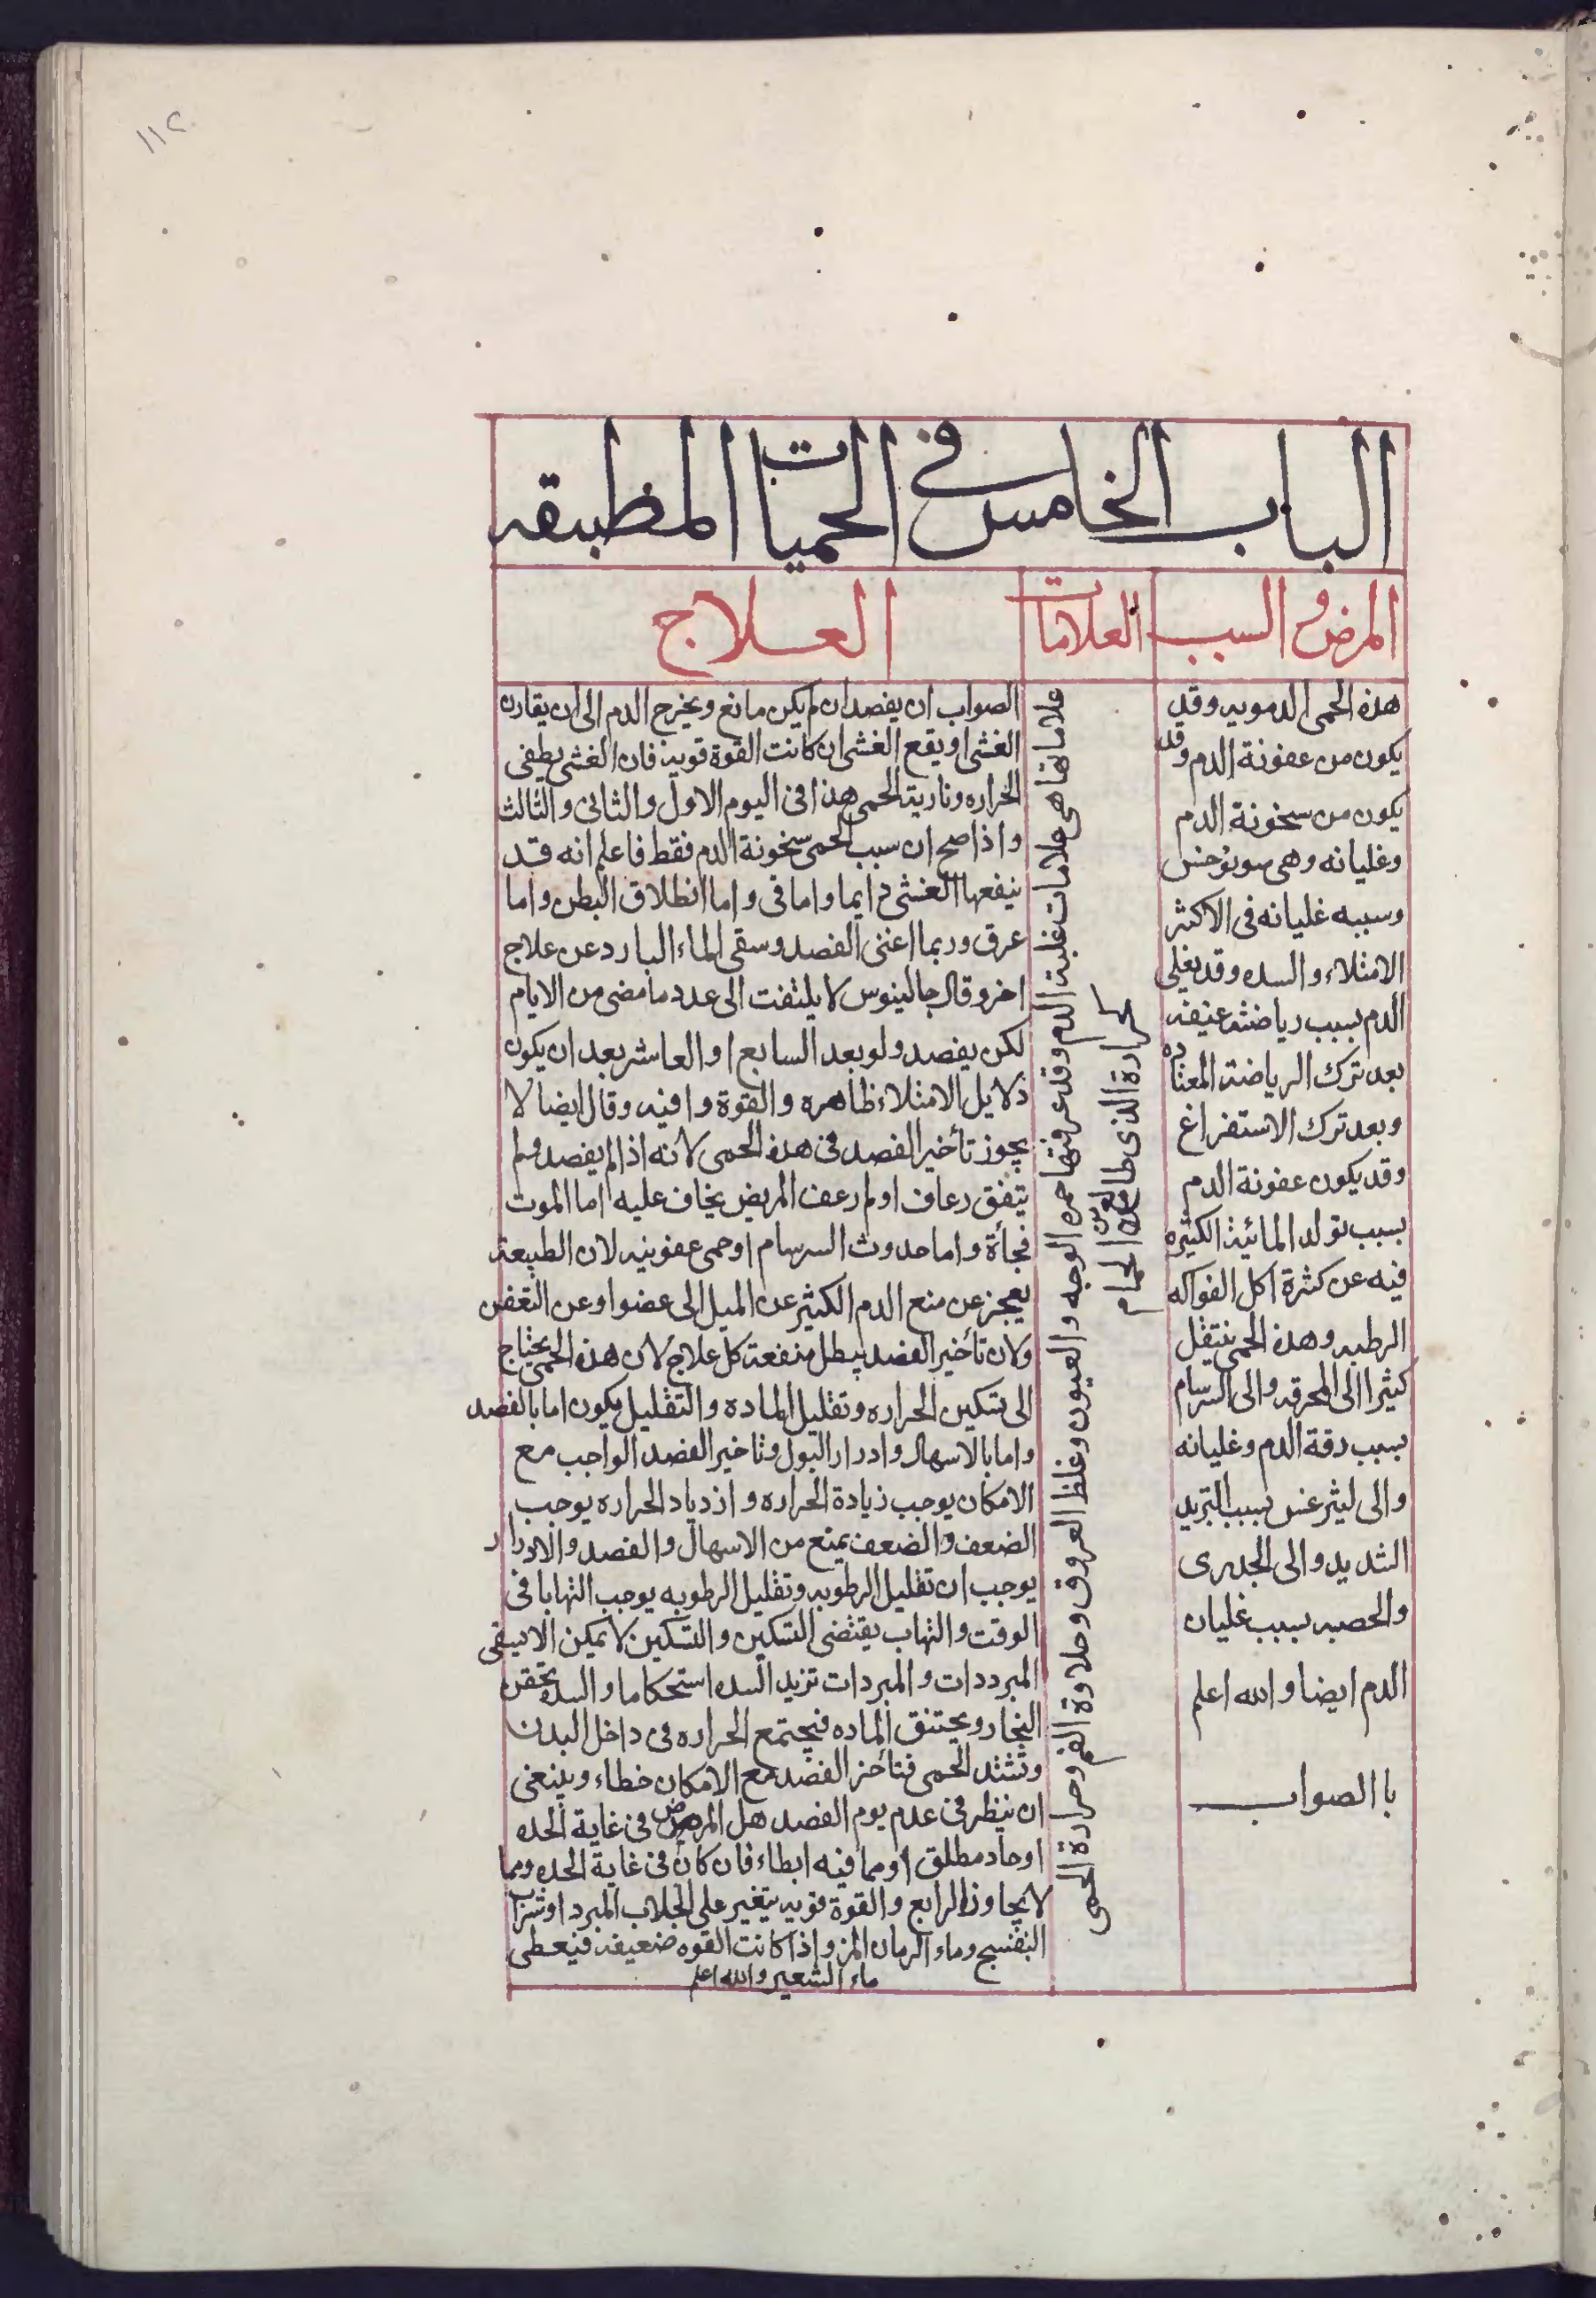 ١١٢
الباب الخامس في الحميات المطبقه
المرض والسبب
العلامات
العلاج
هذه الحمى الدمويه وقد
يكون من عفونة الدم وقد
يكون من سخونة الدم
وغليانه وهى سونوخس
وسببه غليانه فى الاكثر
الامتلاء والسده وقد يغلى
الدم بسبب رياضته عنيفه
بعد ترك الرياضة المعتاده
وبعد ترك الاستفراغ
وقد يكون عفونة الدم
بسبب تولد المائية الكثيره
فيه عن كثرة اكل الفواكه
الرطبه وهذه الحمى ينتقل
كثيرا الى المحرقه والى السرسام
بسبب رقة الدم وغليانه
والى ليثرغس بسبب التبريد
الشديد والى الجدرى
والحصبه بسبب غليان
الدم ايضا والله اعلم
باالصواب
علاماتها هى علامات غلبة الدم وقد عرفتها حمره الوجه والعيون وغلظ العروق وحلاوة الفم وحرارة الحمى
كحرارة الذى طال الحمام
الصواب ان يفصد ان لم يكن مانع ويخرج الدم الى ان يقارن
الغشى او يقع الغشى ان كانت القوة قويه فان الغشى يطفى
الحراره ونارية الحمى هذا فى اليوم الاول والثانى والثالث
واذا صح ان سبب الحمى سخونة الدم فقط فاعلم انه قد
ينفعها الغشى دايما واما قى واما انطلاق البطن واما
عرق وربما اغنى الفصد وسقى الماء البارد عن علاج
اخر وقال جالينوس لا يلتفت الى عدد ما مضى من الايام
لكن يفصد ولو بعد السابع او العاشر بعد ان يكون
دلايل الامتلاء ظاهره والقوة وافيه وقال ايضا لا
يجوز تأخير الفصد فى هذه الحمى لانه اذا لم يفصد ولم
يتفق رعاف او لم رعف المريض يخاف عليه اما الموت
فجأة واما حدوث السرسام او حمى عفونيه لان الطبيعة
يعجز عن منع الدم الكثير عن الميل الى عضو او عن التعفن
ولان تأخير الفصد يبطل منفعة كل علاج لان هذه الحمى يحتاج
الى تسكين الحراره وتقليل الماده والتقليل يكون اما بالفصد
واما بالاسهال وادرار البول وتاخير الفصد الواجب مع
الامكان يوجب زيادة الحراره وازدياد الحراره يوجب
الضعف والضعف يمنع من الاسهال والفصد والادرار
يوجب ان تقليل الرطوبه وتقليل الرطوبه يوجب التهابا فى
الوقت والتهاب يقتضى التسكين والتسكين لا يمكن الا بسقى
المبرددات والمبردات تزيد السده استحكاما والسده تحقن
البخار ويحتنق الماده فيجتمع الحراره فى داخل البدن
وتشتد الحمى فتأخر الفصد مع الامكان خطاء وينبغى
ان ينظر فى عدم يوم الفصد هل المرض فى غاية الحده
او حاد مطلق او مما فيه ابطاء فان كان فى غاية الحده ومما
لا يجاوز الرابع والقوة قويه يتغير على الجلاب المبرد او شراب
البنفسج وماء الرمان المز واذا كانت القوه ضعيفه فيعطى
ماء الشعير والله اعلم